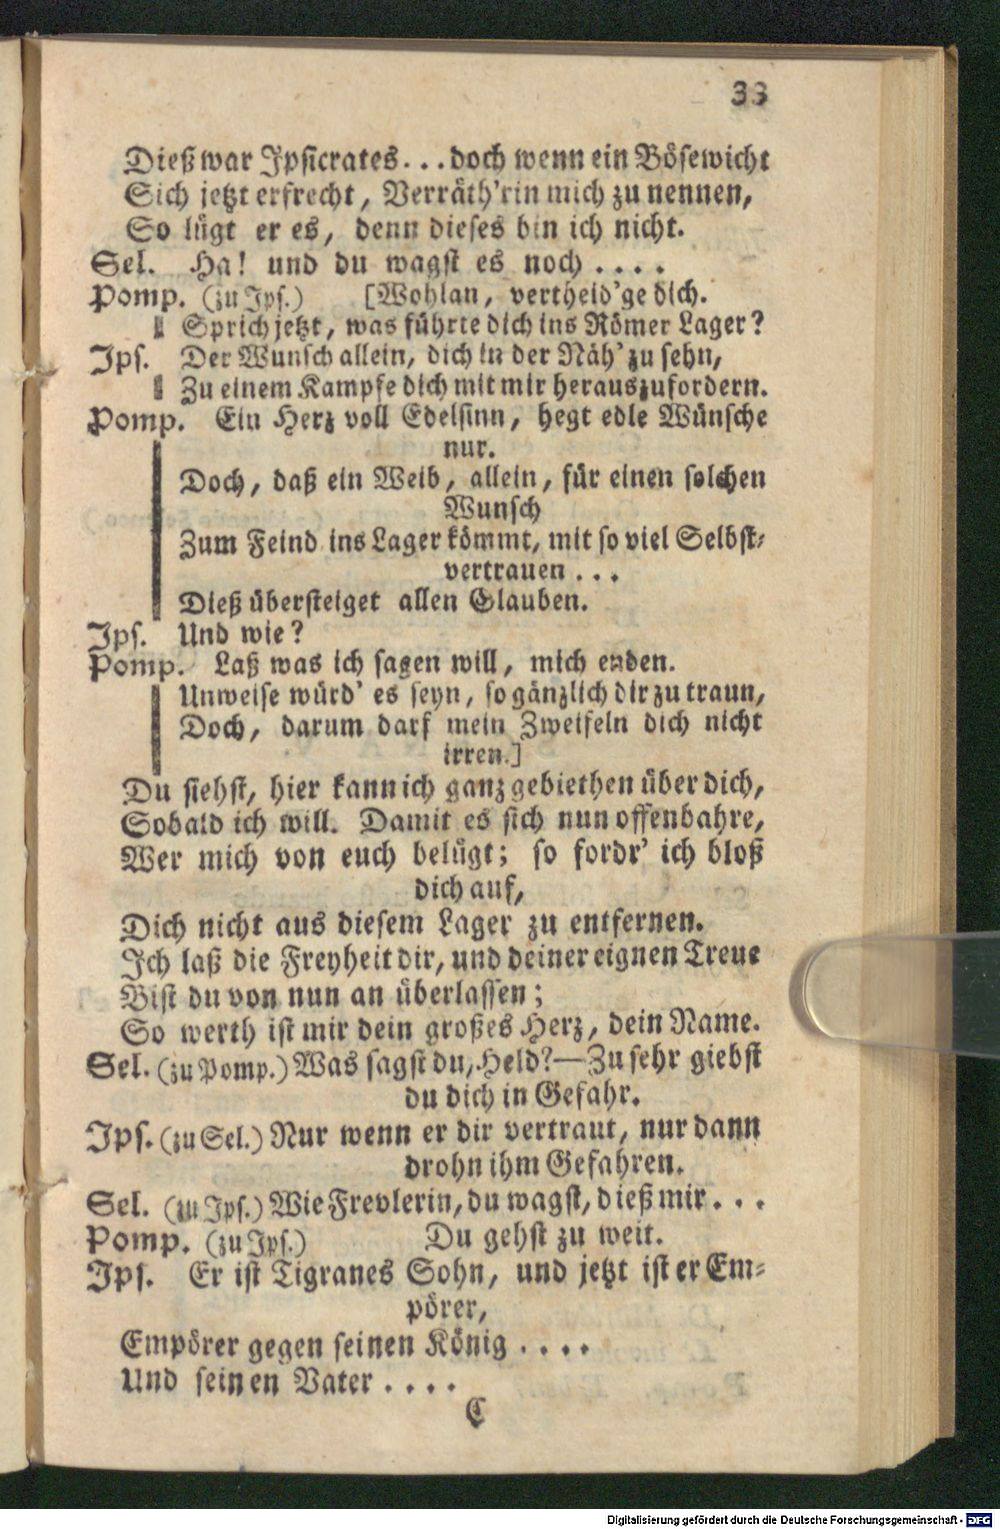 33
Dieß war Ipsicrates... doch wenn ein Bösewicht
Sich jetzt erfrecht, Verräth'rin mich zu nennen,
So lügt er es, denn dieses bin ich nicht.
Sel. Ha! und du wagst es noch ....
Pomp. (zu Ips.) [Wohlan, vertheid'ge dich.
Sprich jetzt, was führte dich ins Römer Lager?
Ips. Der Wunsch allein, dich in der Näh' zu sehn,
Zu einem Kampfe dich mit mir herauszufordern.
Pomp. Ein Herz voll Edelsinn, hegt edle Wünsche
nur.
Doch, daß ein Weib, allein, für einen solchen
Wunsch
Zum Feind ins Lager kömmt, mit so viel Selbst-
vertrauen ...
Dieß übersteiget allen Glauben.
Ips. Und wie?
Pomp. Laß was ich sagen will, mich enden.
Unweise würd' es seyn, so gänzlich dir zu traun,
Doch, darum darf mein Zweifeln dich nicht
irren.]
Du siehst, hier kann ich ganz gebiethen über dich,
Sobald ich will. Damit es sich nun offenbahre,
Wer mich von euch belügt; so fordr' ich bloß
dich auf,
Dich nicht aus diesem Lager zu entfernen.
Ich laß die Freyheit dir, und deiner eignen Treue
Bist du von nun an überlassen;
So werth ist mir dein großes Herz, dein Name.
Sel. (zu Pomp.) Was sagst du, Held?—Zu sehr giebst
du dich in Gefahr.
Ips. (zu Sel.) Nur wenn er dir vertraut, nur dann
drohn ihm Gefahren.
Sel. (zu Ips.) Wie Frevlerin, du wagst, dieß mir ...
Pomp. (zu Ips.) Du gehst zu weit.
Ips. Er ist Tigranes Sohn, und jetzt ist er Em-
pörer,
Empörer gegen seinen König ....
Und seinen Vater ....
C
Digitalisierung gefördert durch die Deutsche Forschungsgemeinschaft - DFG